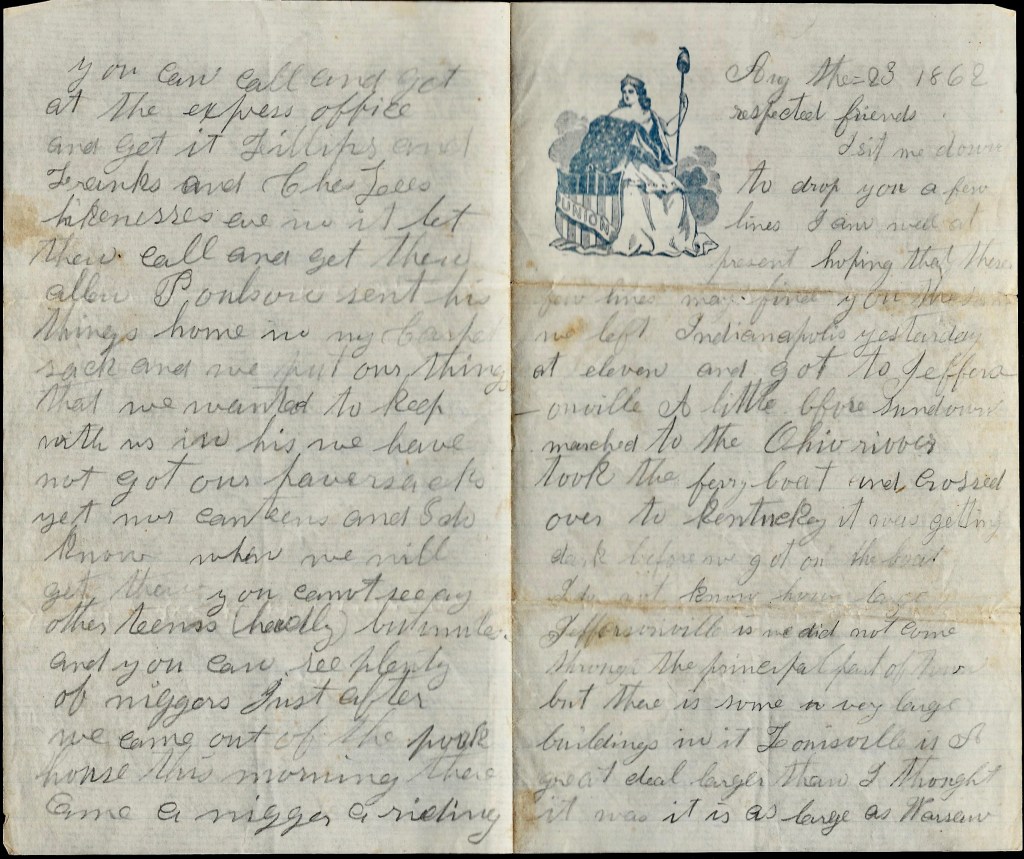 Aug the=23 1862
respected friends
I sit me down
to drop you a few
lines I am well at
present hoping that these
few lines may find you the same
we left Indianapolis yestarday
at eleven and got to Jeffers
-onville A little bfore Sundown
marched to the Ohio rivver
took the ferry boat and Crossed
over to kentucky it was getting
dark before we got on the boat
I do not know how large
Jeffersonville is we did not come
through the principal part of town
but there is some very large
buildings in it Louisville is A
great deal larger than I thought
it was it is as large as Warsaw
UNION
you can call and get
at the express office
and get it Fillips and
Franks and Ches Lees
likenesses are in it let
them call and get them
allen Poulson sent his
things home in my Carpe
sack and we put our things
that we wanted to keep
with us in his we have
not got our haversacks
yet nor canteens and I do
know when we will
get them you cannot see any
other teems (hardly) but mules
and you can see plenty
of niggers Just after
we came out of the pork
house this morning there
Came a nigger a riding